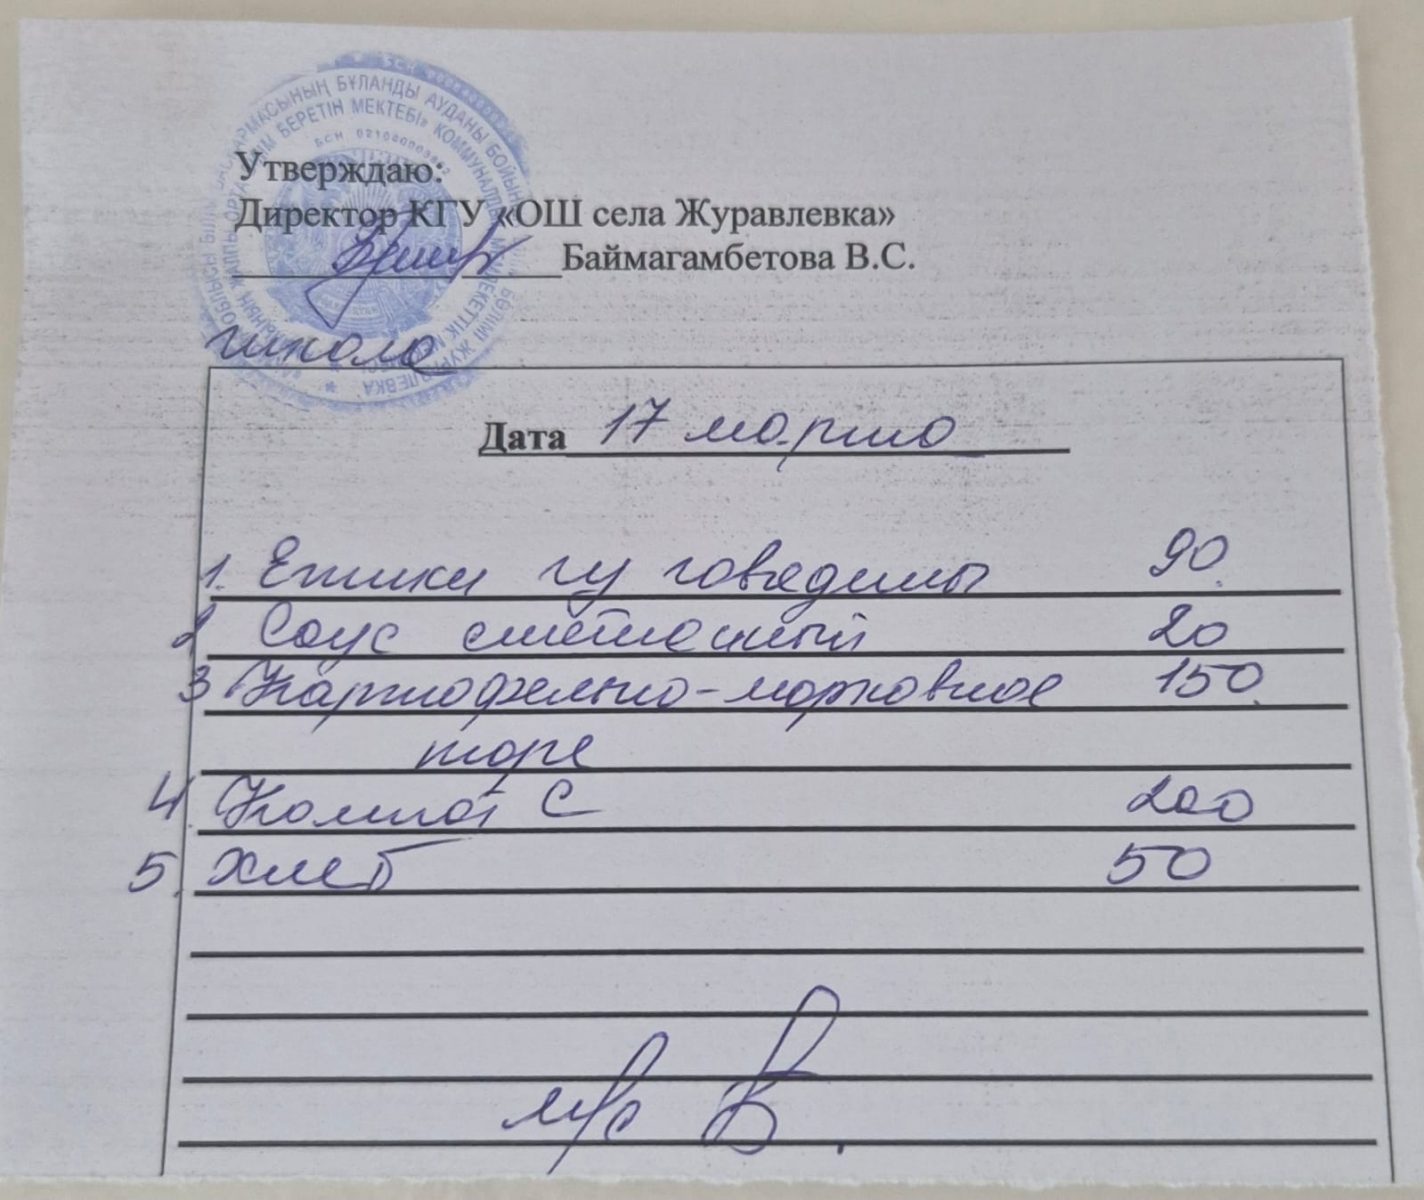 Утверждаю:
Директор КГУ «ОШ села Журавлевка»
Баймагамбетова В.С.
школа
Дата 17 марта
1. Ёжики из говядины 90
2 Соус сметанный 20
3 Картофельно-морковное 150
пюре
4. Компот С 200
5. Хлеб 50
м/с